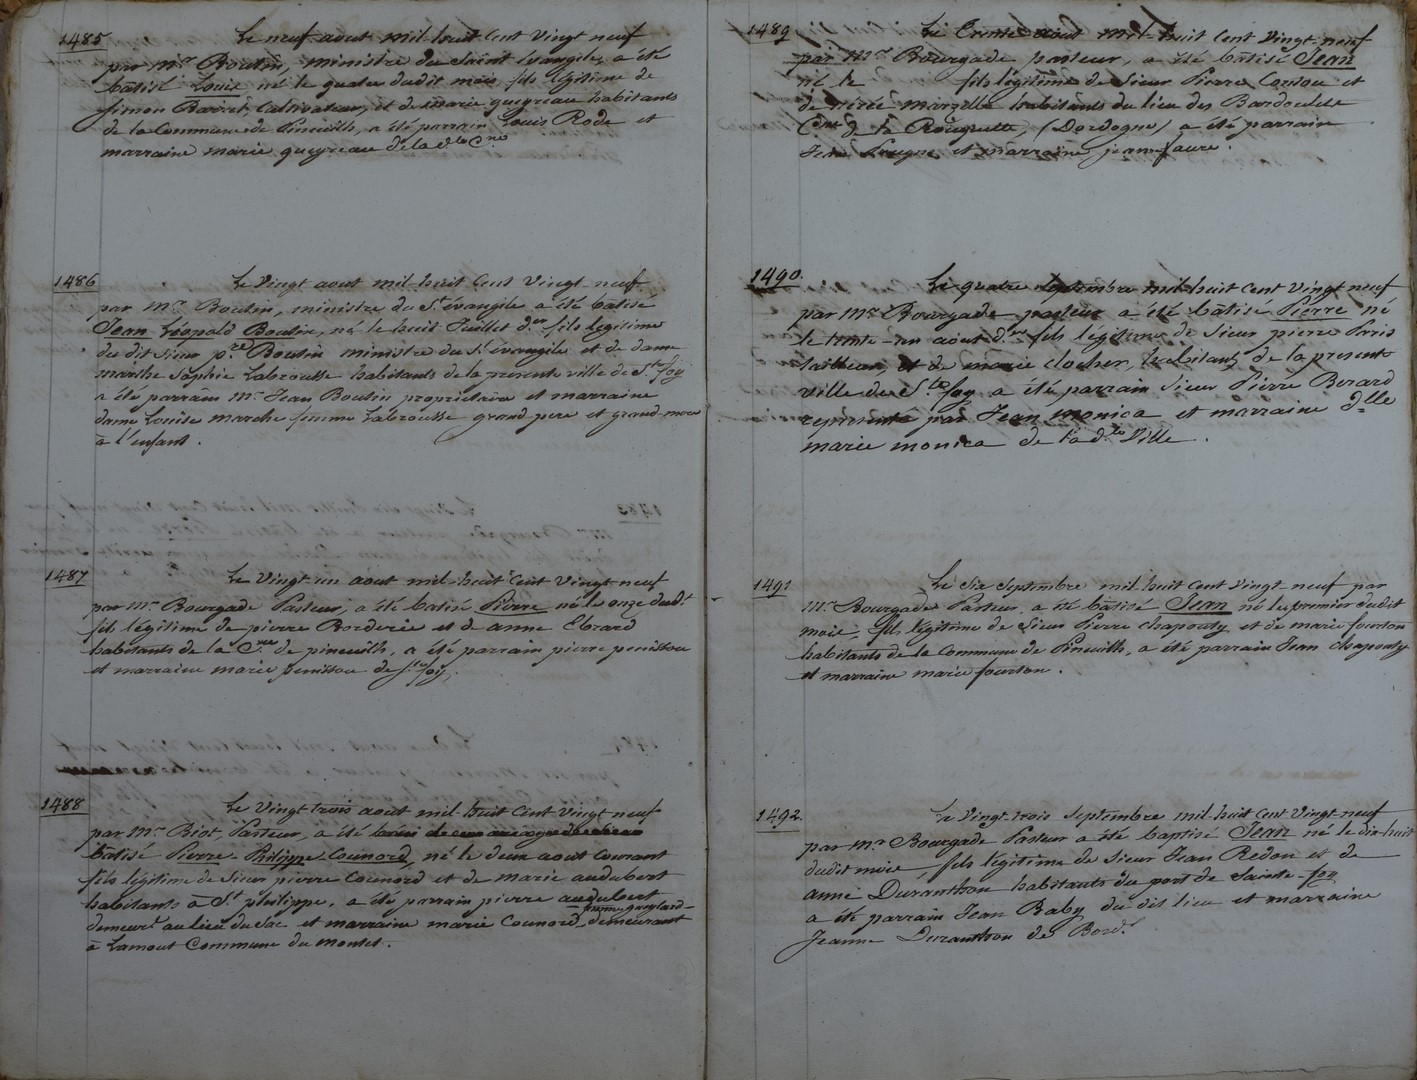 1485
Le neuf aout mil huit Cent Vingt neuf
par Mr Boutin, ministre du Saint Evangile, a été
batisé Louis né le quatre dudit mois, fils légitime de
Simon Barret, Cultivateur, et de marie queyreau habitants
de la Commune de Pineuilh, a été parrain Louis Rode et
marraine marie queyreau de la dte Cne
1486
Le Vingt aout mil huit Cent Vingt neuf
par Mr Boutin, ministre du St évangile a été bâtisé
Jean Léopold Boutin, né le huit Juillet der fils légitime
du dit Sieur pre Boutin ministre du St évangile et de dame
marthe Sophie Labrousse habitants de la présente ville de Ste foy
a été parrain Mr Jean Boutin propriétaire et marraine
dame Louise marche femme Labrousse grand pere et grand-mere
à l'enfant.
1487
Le Vingt-un aout mil-huit Cent Vingt neuf
par Mr Bourgade Pasteur, a été batisé Pierre né le onze dudt
fils légitime de pierre Borderie et de anne Ebrard
habitants de la Cne de pineuilh, a été parrain pierre penissou
et marraine marie penissou de Ste foy.
1488
Le Vingt trois aout mil huit Cent Vingt neuf
par Mr Biot, Pasteur, a été
bâtisé Pierre-Philippe Counord, né le deux aout Courant
fils légitime de Sieur pierre Counord et de marie audubert
habitants à St philippe, a été parrain pierre audubert
demeurt au lieu du Sac et marraine marie Counord demeurant
à Lamout Commune du montet.
1489
Le Trente aout mil-huit Cent Vingt-neuf
par Mr Bourgade pasteur, a été bâtisé Jean
né le fils légitime de Sieur Pierre Contou et
de marzelle habitants du lieu des Bardoulets
Cne de la Rouquette, (Dordogne) a été parrain
Jean et marraine jeanne faure.
1490.
Le quatre Septembre mil-huit Cent Vingt neuf
par Mr Bourgade pasteur a été bâtisé Pierre né
le trente-un aout der fils légitime de Sieur pierre
tailleur, et de marie clocher, habitants de la presente
Ville de Ste foy a été parrain Sieur Pierre Berard
représenté par Jean monica et marraine dlle
marie monica de la dte Ville.
1491
Le Six Septembre mil huit Cent Vingt neuf par
Mr Bourgade Pasteur, a été bâtisé Jean né le premier dudit
mois, fils légitime de Sieur Pierre chapouty et de marie fourton
habitants de la Commune de Pineuilh, a été parrain Jean chapouty
et marraine marie fourton.
1492.
Le Vingt trois Septembre mil huit Cent Vingt neuf
par Mr Bourgade Pasteur a été baptisé Jean né le dix-huit
dudit mois, fils légitime de Sieur Jean Redon et de
anne Duranthon habitants du port de Sainte-foy
a été parrain Jean Raby du dit lieu et marraine
Jeanne Duranthon de Bordx